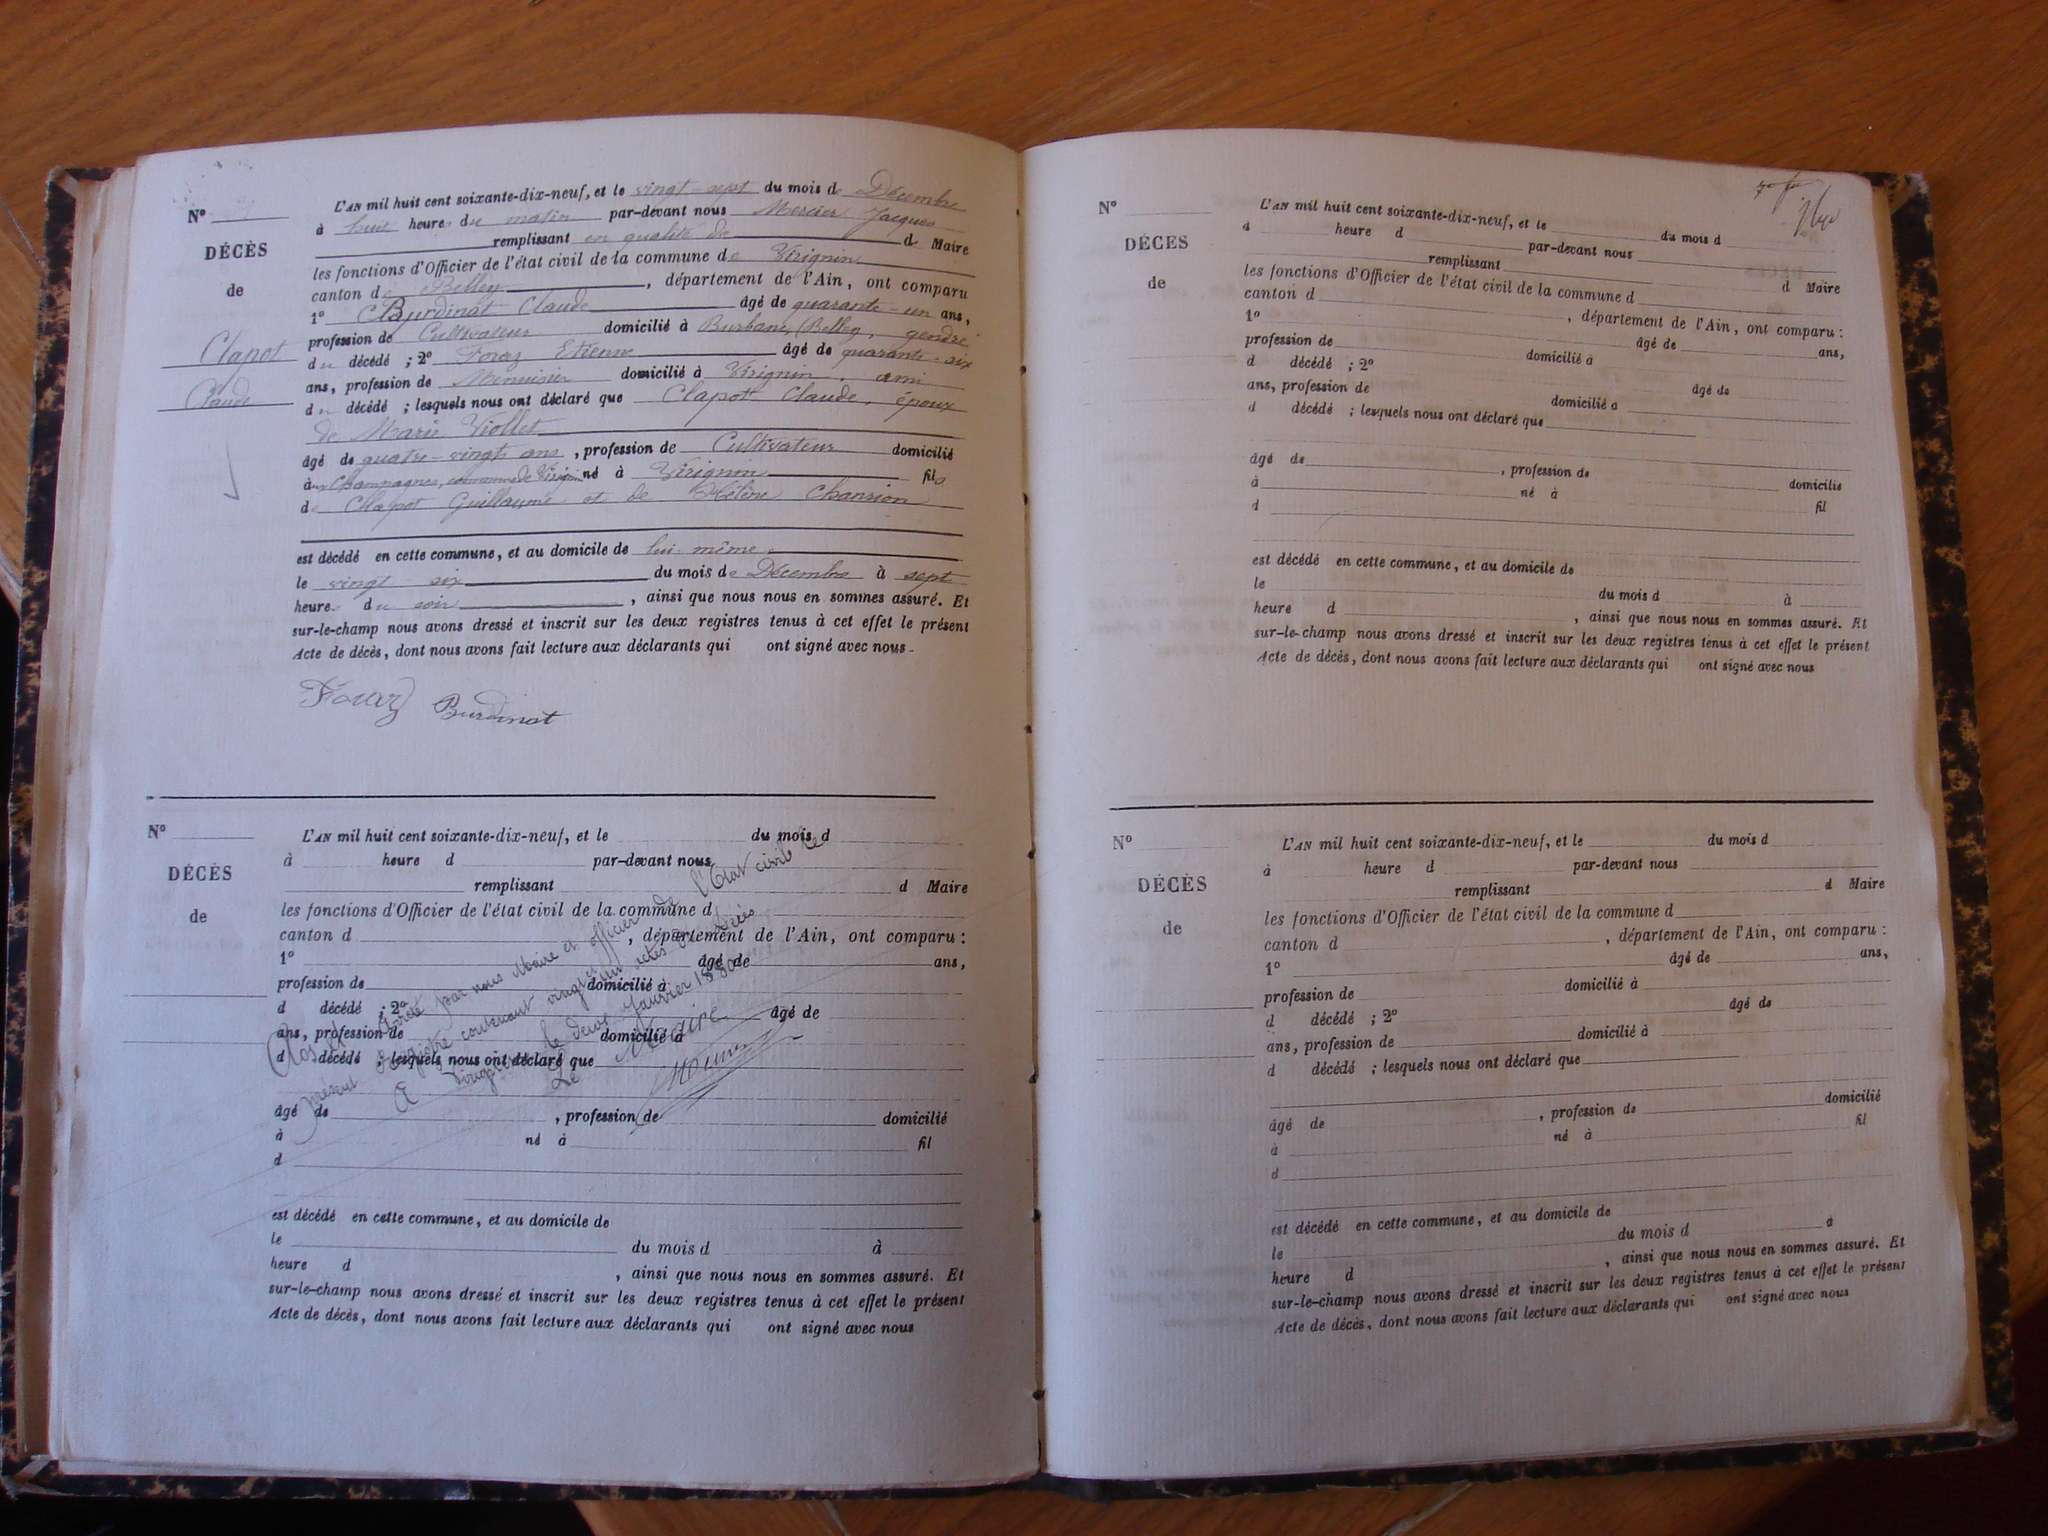 N°
DÉCÈS
de
Clapot
Claude
L'AN mil huit cent soixante-dix-neuf, et le vingt-sept du mois de Décembre
à huit heures du matin par-devant nous Mercier Jacques
remplissant en qualité de d Maire
les fonctions d'Officier de l'état civil de la commune de Virignin
canton de Belley, département de l'Ain, ont comparu
1° Burdinat Claude âgé de quarante-un ans,
profession de Cultivateur domicilié à Belley, gendre
du décédé ; 2° Foraz Etienne âgé de quarante-six
ans, profession de Menuisier domicilié à Virignin, ami
du décédé ; lesquels nous ont déclaré que Clapot Claude, époux
de Marie Viollet
âgé de quatre-vingt ans, profession de Cultivateur domicilié
aux Champagnes, commune de Virignin né à Virignin fils
de Clapot Guillaume et de Hélène Chanrion
est décédé en cette commune, et au domicile de lui-même
le vingt-six du mois de Décembre à sept
heures du soir, ainsi que nous nous en sommes assuré. Et
sur-le-champ nous avons dressé et inscrit sur les deux registres tenus à cet effet le présent
Acte de décès, dont nous avons fait lecture aux déclarants qui ont signé avec nous.
Foraz Burdinat
N°
DÉCÈS
de
L'AN mil huit cent soixante-dix-neuf, et le du mois d
à heure d par-devant nous
remplissant d Maire
les fonctions d'Officier de l'état civil de la commune d
canton d , département de l'Ain, ont comparu :
1° âgé de ans,
profession de domicilié à
d décédé ; 2° âgé de
ans, profession de domicilié à
d décédé ; lesquels nous ont déclaré que
âgé de , profession de domicilié
à né à fil
d
est décédé en cette commune, et au domicile de
le du mois d à
heure d , ainsi que nous nous en sommes assuré. Et
sur-le-champ nous avons dressé et inscrit sur les deux registres tenus à cet effet le présent
Acte de décès, dont nous avons fait lecture aux déclarants qui ont signé avec nous
Clos et arrêté par nous Maire et officier de l'Etat civil le
présent registre contenant vingt un actes de décès
A Virignin le deux Janvier 1880
Le Maire
N°
DÉCÈS
de
L'AN mil huit cent soixante-dix-neuf, et le du mois d
à heure d par-devant nous
remplissant d Maire
les fonctions d'Officier de l'état civil de la commune d
canton d , département de l'Ain, ont comparu :
1° âgé de ans,
profession de domicilié à
d décédé ; 2° âgé de
ans, profession de domicilié à
d décédé ; lesquels nous ont déclaré que
âgé de , profession de domicilié
à né à fil
d
est décédé en cette commune, et au domicile de
le du mois d à
heure d , ainsi que nous nous en sommes assuré. Et
sur-le-champ nous avons dressé et inscrit sur les deux registres tenus à cet effet le présent
Acte de décès, dont nous avons fait lecture aux déclarants qui ont signé avec nous
N°
DÉCÈS
de
L'AN mil huit cent soixante-dix-neuf, et le du mois d
à heure d par-devant nous
remplissant d Maire
les fonctions d'Officier de l'état civil de la commune d
canton d , département de l'Ain, ont comparu :
1° âgé de ans,
profession de domicilié à
d décédé ; 2° âgé de
ans, profession de domicilié à
d décédé ; lesquels nous ont déclaré que
âgé de , profession de domicilié
à né à fil
d
est décédé en cette commune, et au domicile de
le du mois d à
heure d , ainsi que nous nous en sommes assuré. Et
sur-le-champ nous avons dressé et inscrit sur les deux registres tenus à cet effet le présent
Acte de décès, dont nous avons fait lecture aux déclarants qui ont signé avec nous